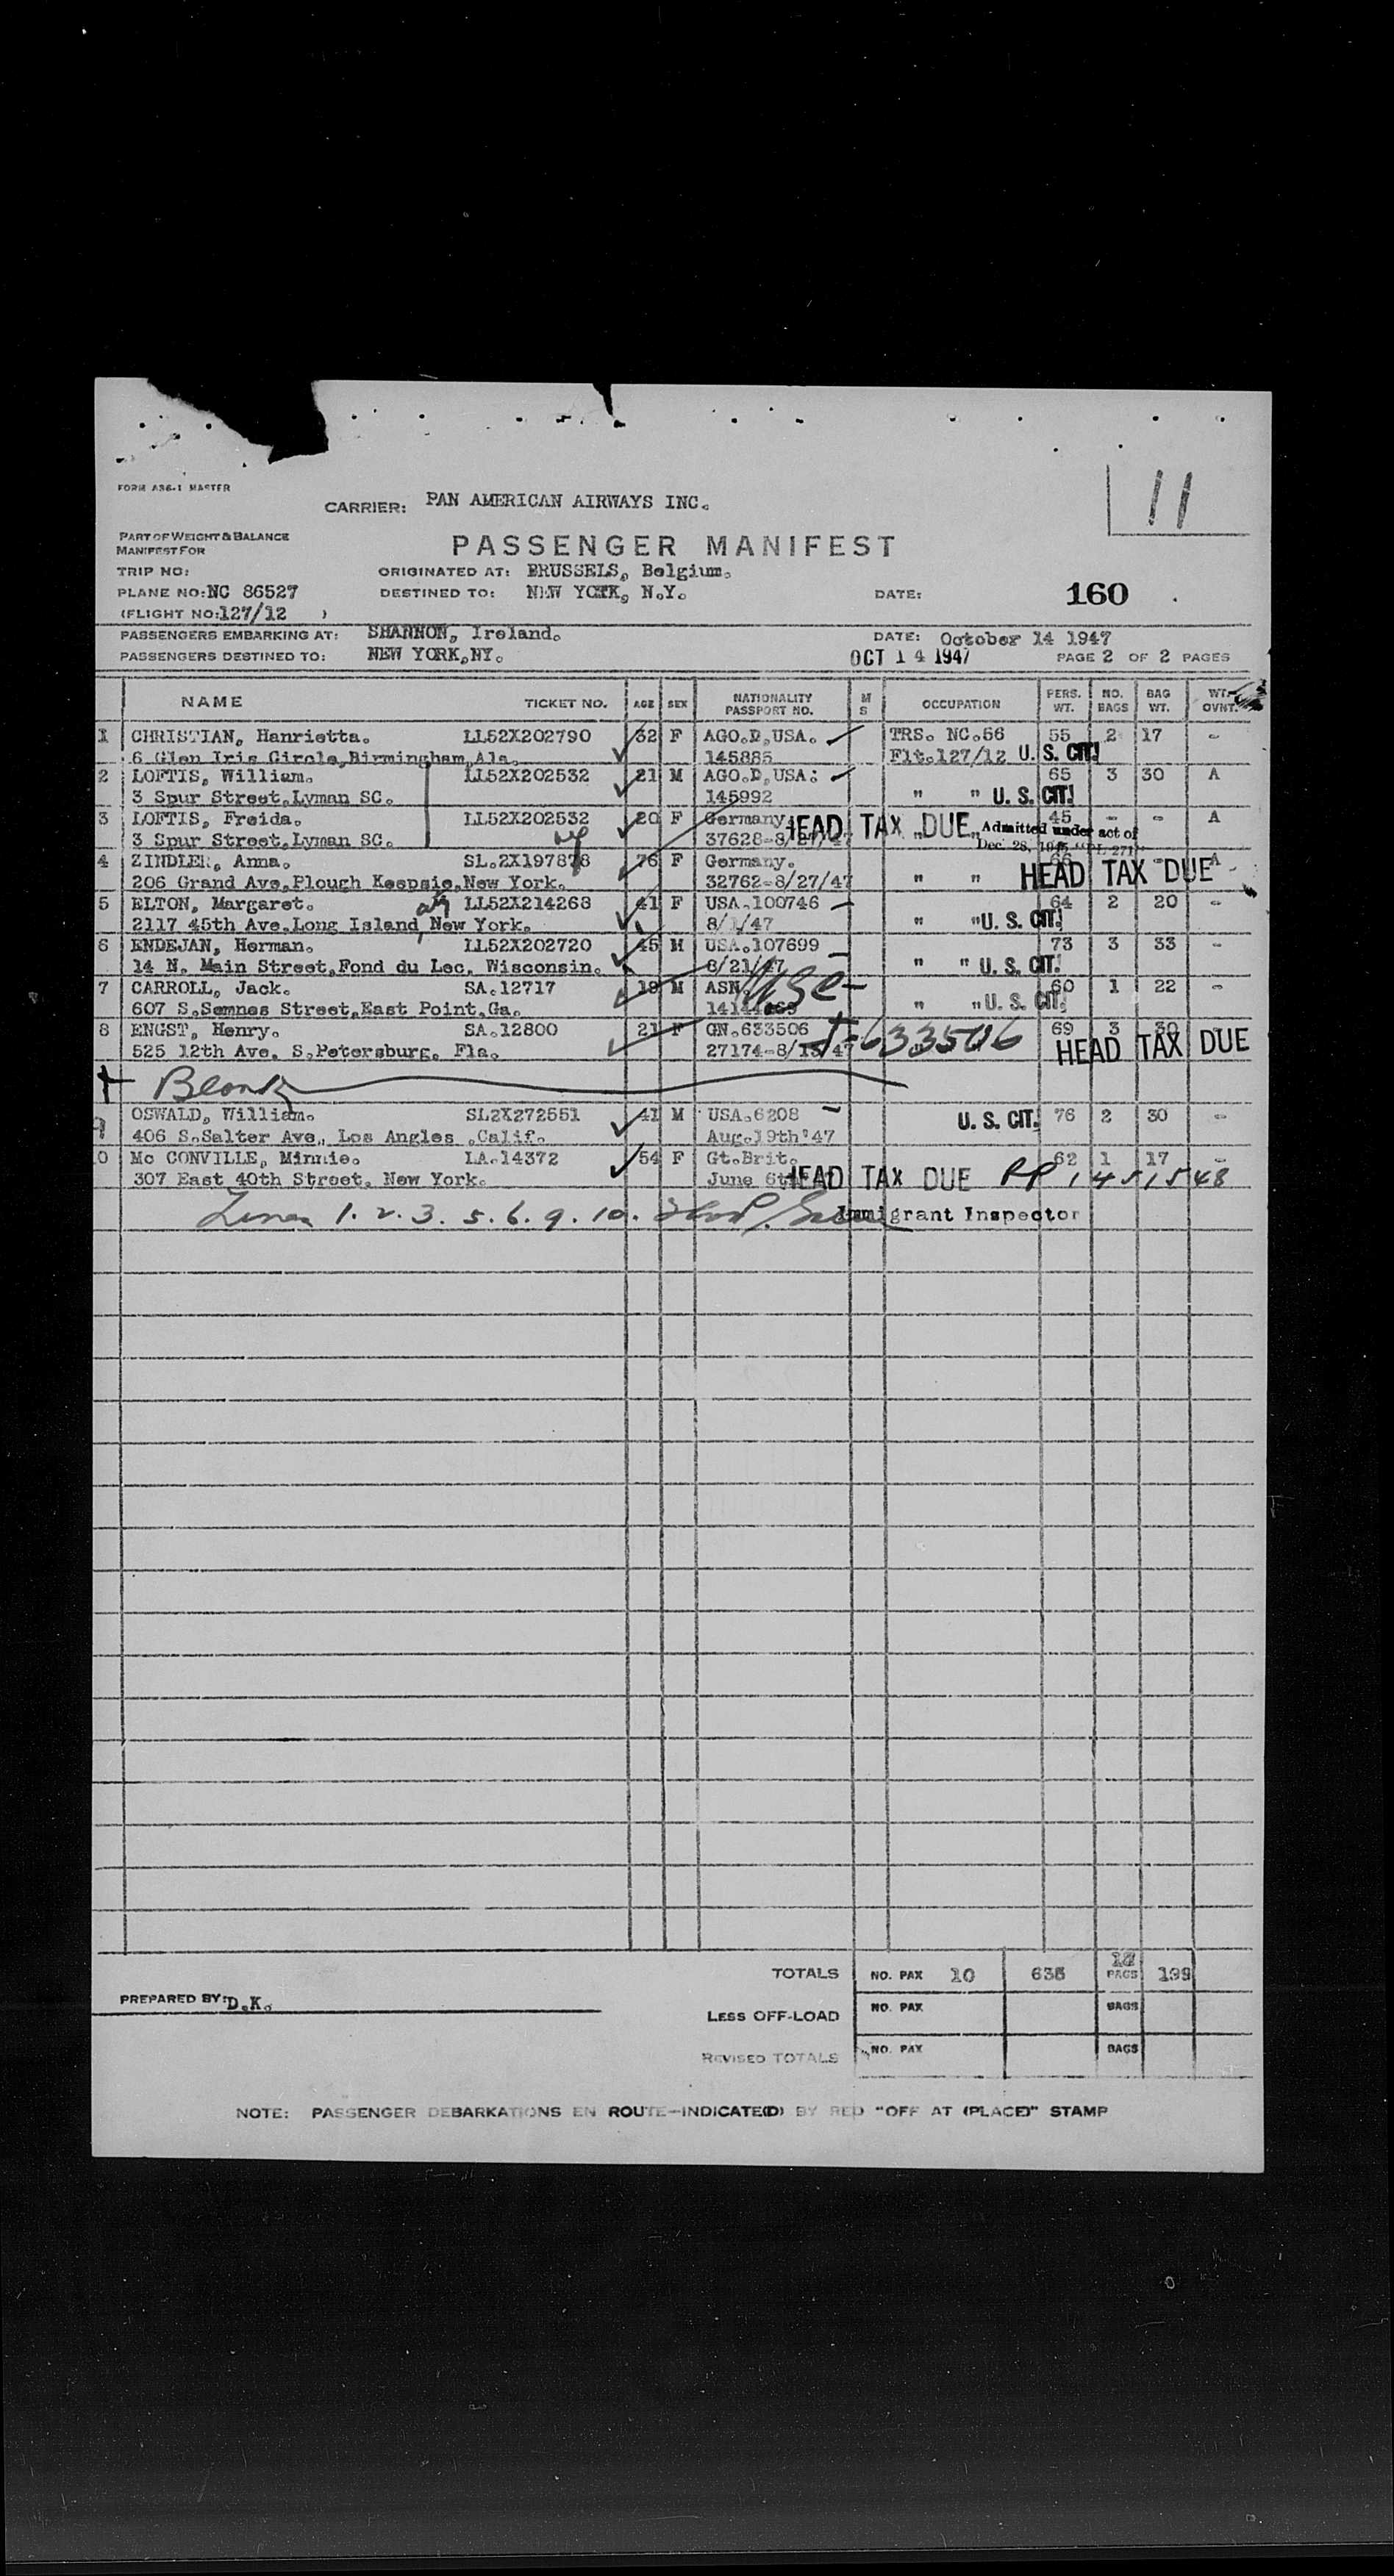 FORM A36-1 MASTER
11
CARRIER: PAN AMERICAN AIRWAYS INC.
PART OF WEIGHT & BALANCE
MANIFEST FOR
PASSENGER MANIFEST
TRIP NO:
ORIGINATED AT: BRUSSELS, Belgium.
PLANE NO: NC 86527
DESTINED TO: NEW YORK, N.Y.
DATE: 160
(FLIGHT NO: 127/12 )
PASSENGERS EMBARKING AT: SHANNON, Ireland.
DATE: October 14 1947
PASSENGERS DESTINED TO: NEW YORK,NY.
OCT 14 1947
PAGE 2 OF 2 PAGES
NAME TICKET NO. AGE SEX NATIONALITY PASSPORT NO. M S OCCUPATION PERS. WT. NO. BAGS BAG WT. WT. OVNT.
1 CHRISTIAN, Hanrietta. LL52X202790 32 F AGO.D.USA. TRS. NC.56 55 2 17 -
6 Glen Iris Circle,Birmingham,Ala. 145885 Flt.127/12 U. S. CIT.
2 LOFTIS, William. LL52X202532 21 M AGO.D.USA. 65 3 30 A
3 Spur Street,Lyman SC. 145992 " " U. S. CIT.
3 LOFTIS, Freida. LL52X202532 20 F Germany 45 - - A
HEAD TAX DUE Admitted under act of
3 Spur Street,Lyman SC. 37628-8/27/47 " " Dec. 28, 1945
4 ZINDLER, Anna. SL.2X197878 76 F Germany. 66 - A
206 Grand Ave,Plough Keepsie,New York. 32762-8/27/47 " " HEAD TAX DUE
5 ELTON, Margaret. LL52X214268 41 F USA.100746 64 2 20 -
2117 45th Ave.Long Island, New York. 8/1/47 " " U. S. CIT.
6 ENDEJAN, Herman. LL52X202720 45 M USA.107699 73 3 33 -
14 N. Main Street,Fond du Lec, Wisconsin. 8/21/47 " " U. S. CIT.
7 CARROLL, Jack. SA.12717 19 M ASN. 60 1 22 -
607 S.Semnes Street,East Point,Ga. " " U. S. CIT.
8 ENGST, Henry. SA.12800 21 F GN.633506 633506 69 3 30
525 12th Ave. S.Petersburg. Fla. 27174-8/13/47 HEAD TAX DUE
Blank
9 OSWALD, William. SL2X272551 41 M USA.6208 U. S. CIT. 76 2 30 -
406 S.Salter Ave., Los Angles ,Calif. Aug.19th'47
0 Mc CONVILLE, Minnie. LA.14372 54 F Gt.Brit. 62 1 17 -
307 East 40th Street, New York. June 6th HEAD TAX DUE PP 1451548
Lines 1. 2. 3. 5. 6. 9. 10. Immigrant Inspector
TOTALS NO. PAX 10 635 BAGS 199
PREPARED BY: D.K.
LESS OFF-LOAD NO. PAX BAGS
REVISED TOTALS NO. PAX BAGS
NOTE: PASSENGER DEBARKATIONS EN ROUTE—INDICATE(D) BY RED "OFF AT (PLACE)" STAMP